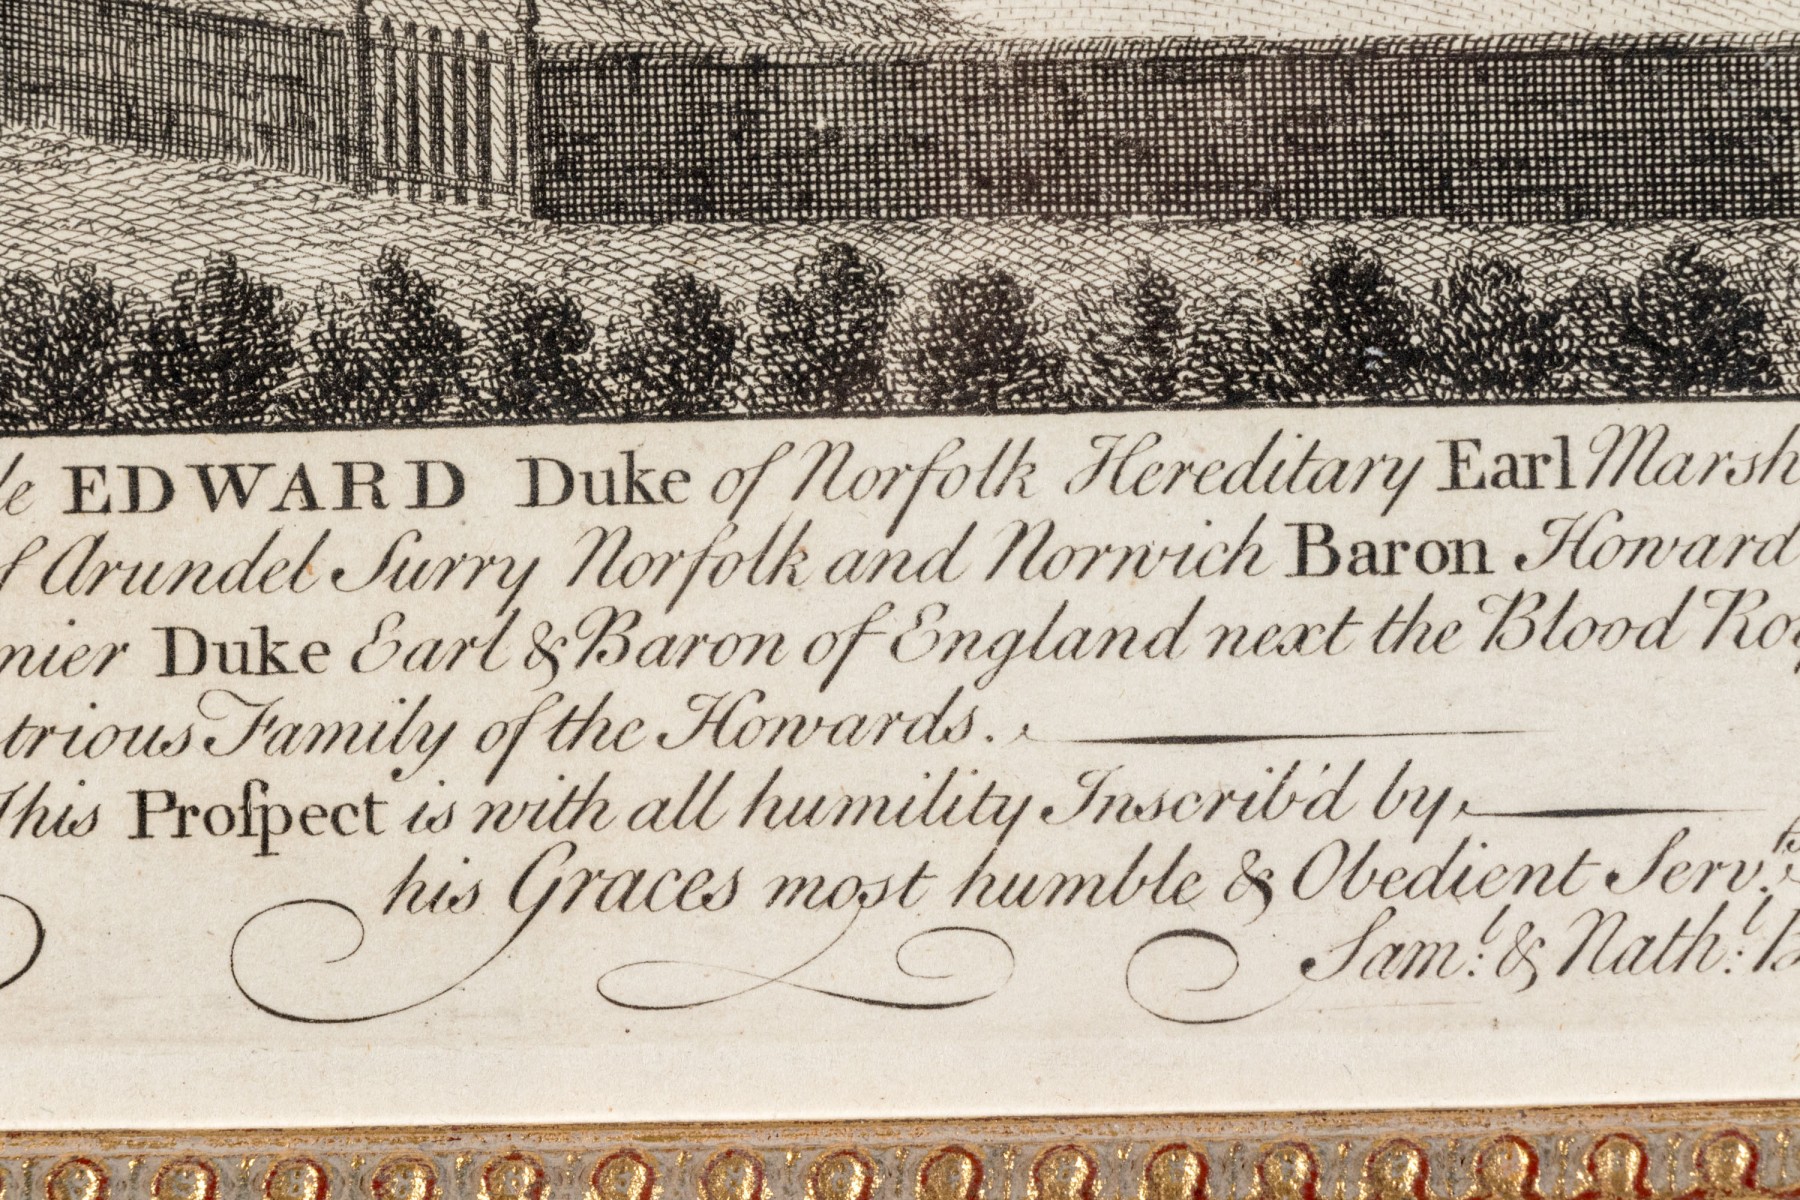 le EDWARD Duke of Norfolk Hereditary Earl Marsh
f Arundel Surry Norfolk and Norwich Baron Howard
nier Duke Earl & Baron of England next the Blood Roy
trious Family of the Howards.
This Proſpect is with all humility Inscrib'd by
his Graces most humble & Obedient Serv.ts
Sam.l & Nath.l B